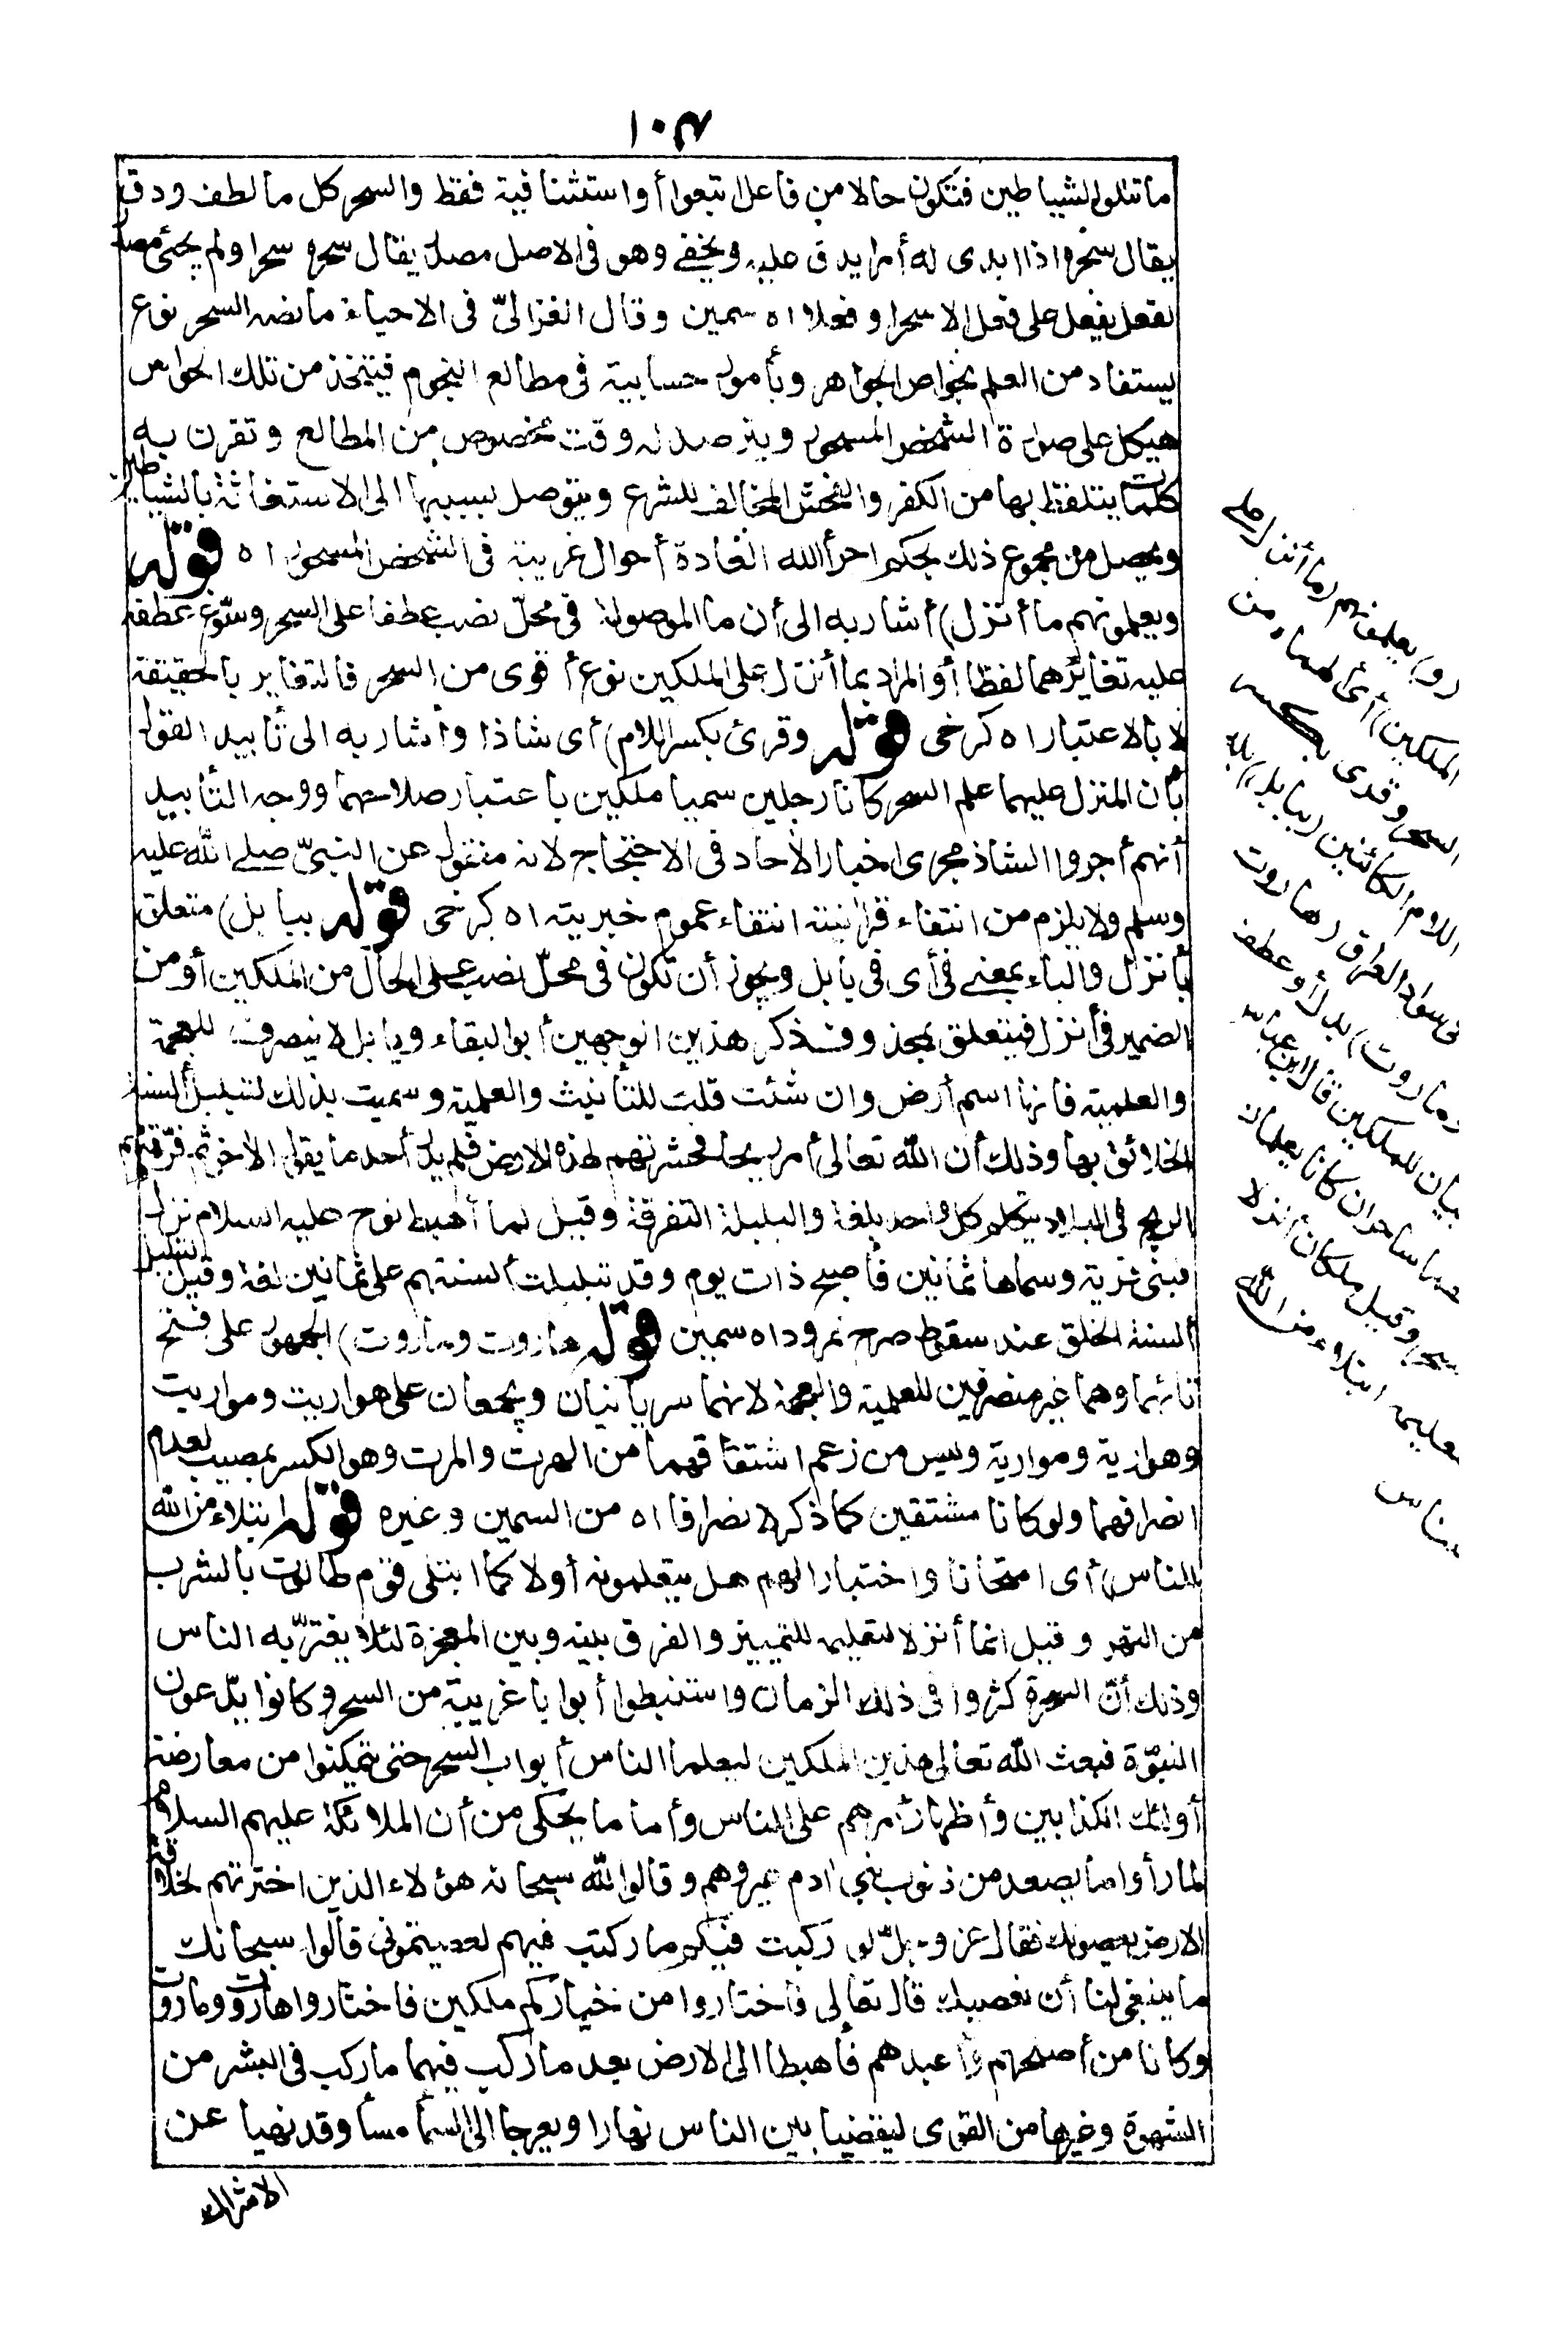 ١٠٣
ما تتلو الشياطين فتكون حالا من فاعل اتبعوا أو استئنافية فقط والسحر كل ما لطف ودق
يقال سحره اذا ابدى له أمرا يدق عليه ويخفى وهو فى الاصل مصدر يقال سحره سحرا ولم يجئ مصدر
لفعل يفعل على فعل الا سحرا وفعلا اه سمين وقال الغزالىّ فى الاحياء ما نصه السحر نوع
يستفاد من العلم بخواص الجواهر وبأمور حسابية فى مطالع النجوم فيتخذ من تلك الخواص
هيكل على صورة الشخص المسحور ويترصد له وقت مخصوص من المطالع وتقرن به
كلمات يتلفظ بها من الكفر والفحش المخالف للشرع ويتوصل بسببها الى الاستغاثة بالشياطين
ويحصل من مجموع ذلك بحكم اجرأ الله العادة أحوال غريبة فى الشخص المسحور اه قوله
ويعلمونهم ما أنزل) أشار به الى أن ما الموصولة فى محلّ نصب عطفا على السحر وسوّغ عطفه
عليه تغايرهما لفظا أو المراد بما أنزل على الملكين نوع أقوى من السحر فالتغاير بالحقيقة
لا بالاعتبار اه كرخى قوله وقرئ بكسر اللام) أى شاذا وأشار به الى تأييد القول
بأن المنزل عليهما علم السحر كانا رجلين سميا ملكين باعتبار صلاحهما ووجه التأييد
أنهم أجروا الشاذ مجرى اخبار الآحاد فى الاحتجاج لانه منقول عن النبىّ صلى الله عليه
وسلم ولا يلزم من انتفاء قرآنيته انتفاء عموم خبريته اه كرخى قوله ببابل) متعلق
بأنزل والباء بمعنى فى أى فى بابل ويجوز أن تكون فى محلّ نصب على الحال من الملكين أو من
الضمير فى أنزل فيتعلق بمحذوف ذكر هذين الوجهين أبو البقاء وبابل لا ينصرف للعجمة
والعلمية فانها اسم أرض وان شئت قلت للتأنيث والعلمية وسميت بذلك لتبلبل ألسنة
الخلائق بها وذلك أن الله تعالى أمر ريحا فحشرتهم لهذه الارض فلم يدر أحد ما يقول الاخر ثم فرّقتهم
الريح فى البلاد يتكلم كل واحد بلغة والبلبلة التفرقة وقيل لما أهبط نوح عليه السلام نزل
فبنى قرية وسماها ثمانين فأصبح ذات يوم وقد تبلبلت ألسنتهم على ثمانين لغة وقيل لتبلبل
ألسنة الخلق عند سقوط صرح نمروداه سمين قوله هاروت وماروت) الجمهور على فتح
تائهما وهما غير منصرفين للعلمية والعجمة لانهما سريانيان ويجمعان على هواريت ومواريت
وهوارية وموارية وليس من زعم اشتقاقهما من الهرت والمرت وهو الكسر بمصيب لعدم
انصرافهما ولو كانا مشتقين كما ذكر لانصرفا اه من السمين وغيره قوله ابتلاء من الله
للناس) أى امتحانا واختبارا لهم هل يتعلمونه أولا كما ابتلى قوم طالوت بالشرب
من النهر وقيل انما أنزلا لتعليمه للتمييز والفرق بينه وبين المعجزة لئلا يغترّ به الناس
وذلك أنّ السحرة كثروا فى ذلك الزمان واستنبطوا أبوابا غريبة من السحر وكانوا يدّعون
النبوّة فبعث الله تعالى هذين الملكين ليعلما الناس أبواب السحر حتى يتمكنوا من معارضة
أولئك الكذابين وأظهار أمرهم على الناس وأما ما يحكى من أن الملائكة عليهم السلام
لما رأوا ما يصعد من ذنوب بنى ادم عيروهم وقالوا لله سبحانه هؤلاء الذين اخترتهم لخلافة
الارض يعصونك فقال عز وجلّ لو ركبت فيكم ما ركبت فيهم لعصيتمونى قالوا سبحانك
ما ينبغى لنا أن نعصيك قال تعالى فاختاروا من خياركم ملكين فاختاروا هاروت وماروت
وكانا من أصلحهم وأعبدهم فأهبطا الى الارض بعد ما ركب فيهما ما ركب فى البشر من
الشهوة وغيرها من القوى ليقضيا بين الناس نهارا ويعرجا الى السمأ مسأ وقد نهيا عن
الاشراك
(و) يعلمونهم (ما أنزل على
الملكين) أى ألهماه من
السحر وقرئ بكسر
اللام الكائنين (ببابل) بلد
فى سواد العراق (هاروت
وماروت) بدل أو عطف
بيان للملكين قال ابن عباس
هما ساحران كانا يعلمان
السحر وقيل ملكان أنزلا
لتعليمه ابتلاء من الله
للناس